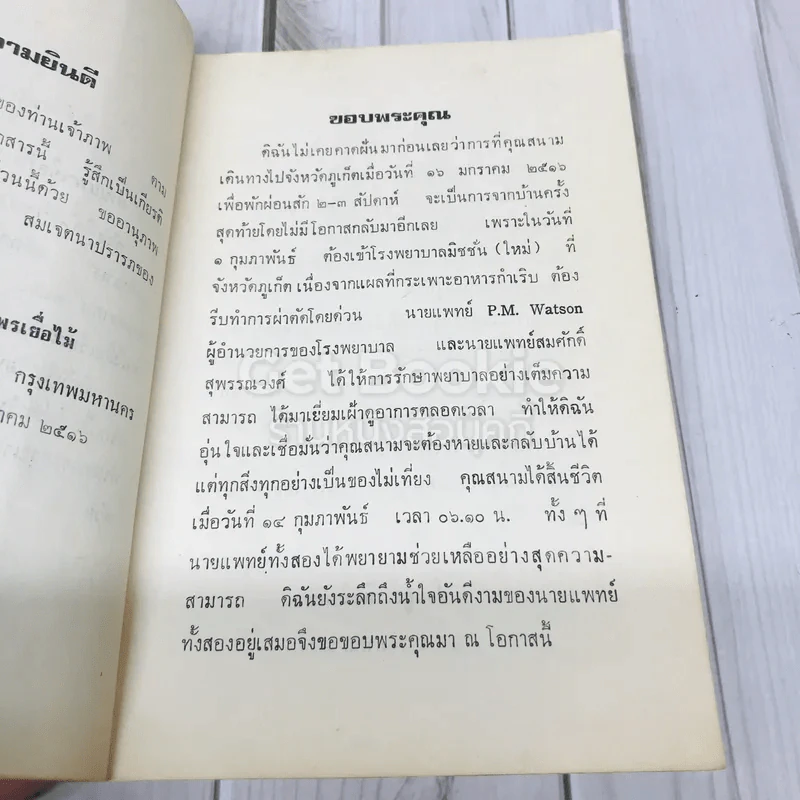 วามยินดี
ของท่านเจ้าภาพ ตาม
าสารนี้ รู้สึกเป็นเกียรติ
ส่วนนี้ด้วย ขออานุภาพ
สมเจตนาปรารภของ
พรเยื่อไม้
กรุงเทพมหานคร
าคม ๒๕๑๖
ขอบพระคุณ
ดิฉันไม่เคยคาดฝันมาก่อนเลยว่าการที่คุณสนาม
เดินทางไปจังหวัดภูเก็ตเมื่อวันที่ ๑๖ มกราคม ๒๕๑๖
เพื่อพักผ่อนสัก ๒-๓ สัปดาห์ จะเป็นการจากบ้านครั้ง
สุดท้ายโดยไม่มีโอกาสกลับมาอีกเลย เพราะในวันที่
๑ กุมภาพันธ์ ต้องเข้าโรงพยาบาลมิชชั่น (ใหม่) ที่
จังหวัดภูเก็ต เนื่องจากแผลที่กระเพาะอาหารกำเริบ ต้อง
รีบทำการผ่าตัดโดยด่วน นายแพทย์ P.M. Watson
ผู้อำนวยการของโรงพยาบาล และนายแพทย์สมศักดิ์
สุพรรณวงศ์ ได้ให้การรักษาพยาบาลอย่างเต็มความ
สามารถ ได้มาเยี่ยมเฝ้าดูอาการตลอดเวลา ทำให้ดิฉัน
อุ่นใจและเชื่อมั่นว่าคุณสนามจะต้องหายและกลับบ้านได้
แต่ทุกสิ่งทุกอย่างเป็นของไม่เที่ยง คุณสนามได้สิ้นชีวิต
เมื่อวันที่ ๑๔ กุมภาพันธ์ เวลา ๐๖.๑๐ น. ทั้ง ๆ ที่
นายแพทย์ทั้งสองได้พยายามช่วยเหลืออย่างสุดความ-
สามารถ ดิฉันยังระลึกถึงน้ำใจอันดีงามของนายแพทย์
ทั้งสองอยู่เสมอจึงขอขอบพระคุณมา ณ โอกาสนี้
Get Bookie
ร้านหนังสือบุ๊คกี้